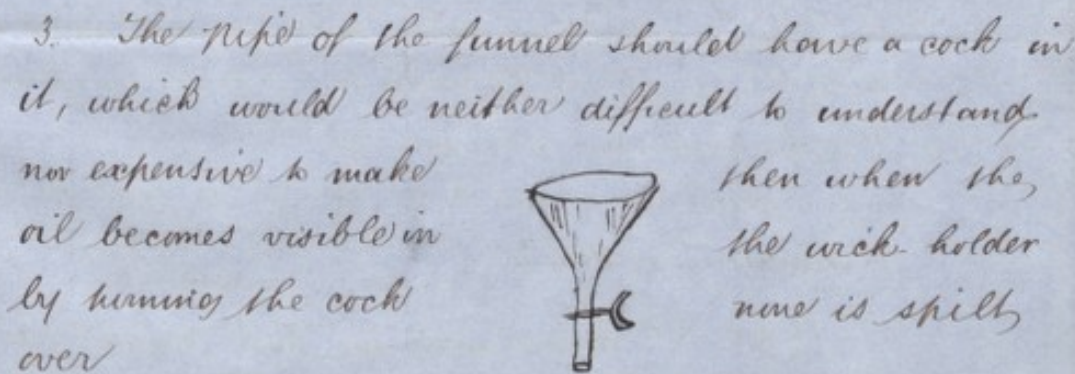 3. The pipe of the funnel should have a cock in
it, which would be neither difficult to understand
nor expensive to make then when the
oil becomes visible in the wick-holder
by turning the cock none is spilt
over